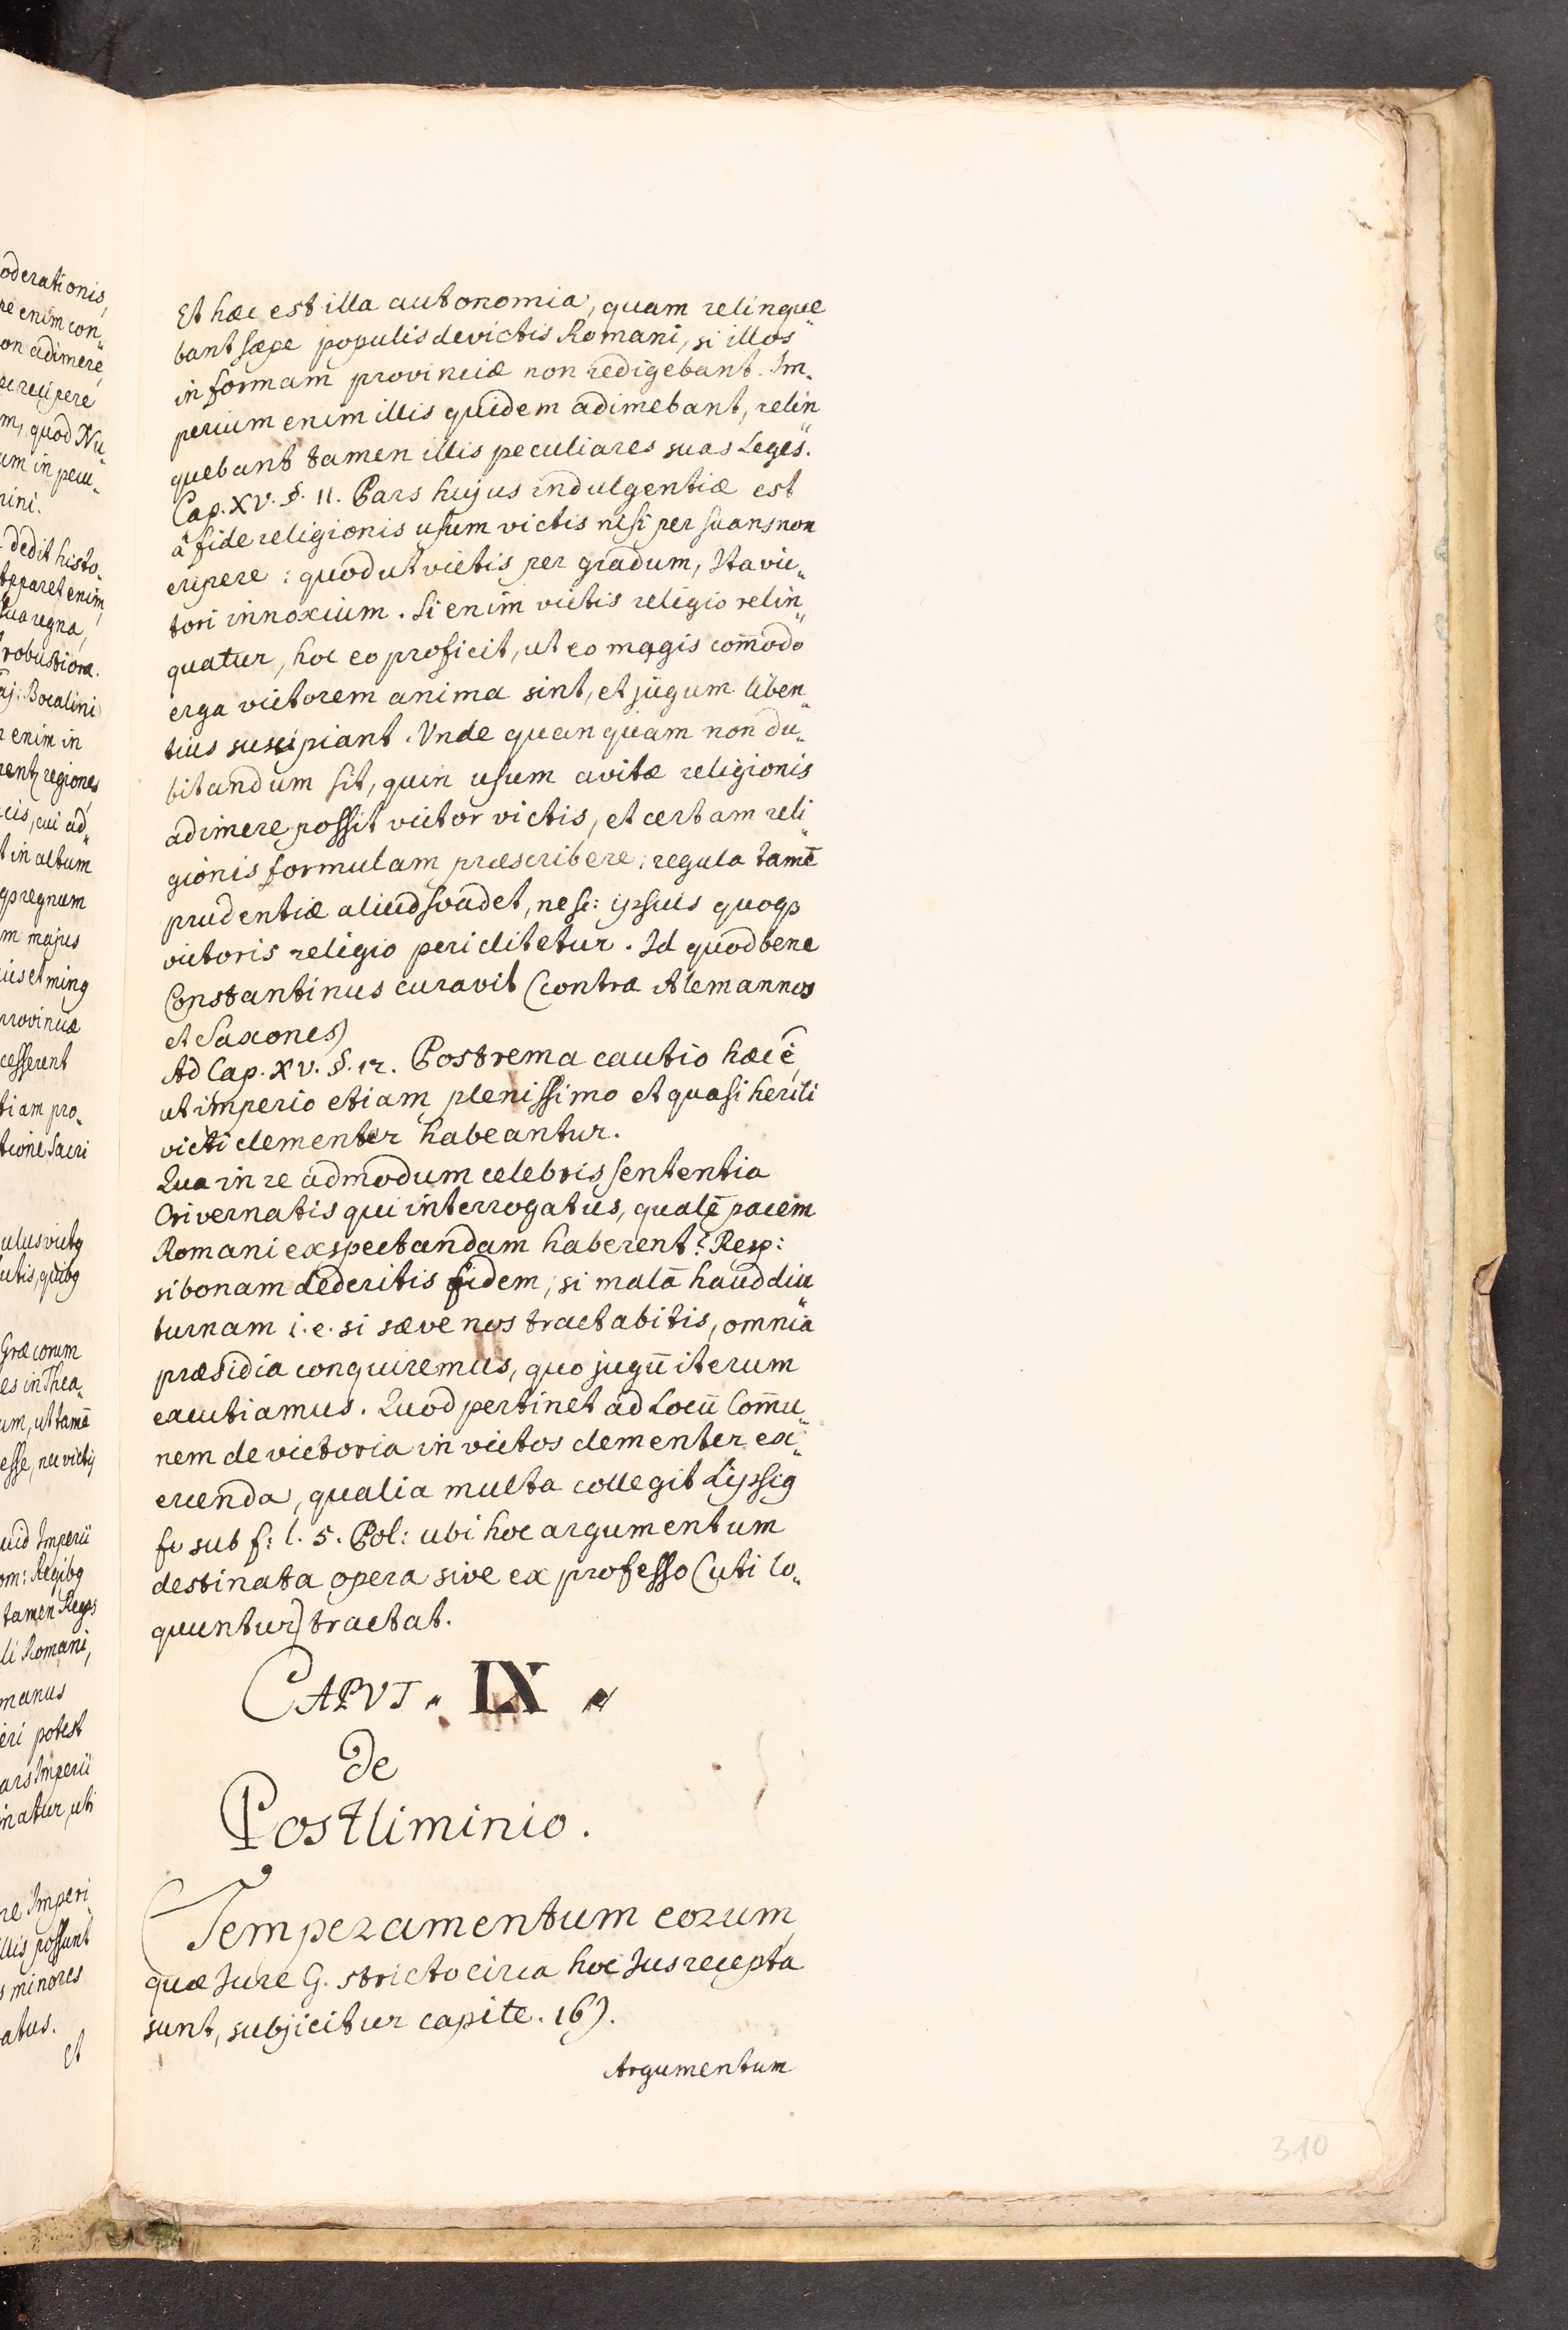 oderationis,
re enim con„
on adimere,
re recipere
m, quod Nu„
um in pecu„
rini.
dedit histo„
apparet enim,
sua regna,
robustiora.
aj: Bocalini
enim in
regiones
cis, cui ad„
t in altum
regnum
m majus
provinciæ
cesserent
tiam pro„
tione Sacri
Græcorum
es in Thea„
um, ut tamē
uid Imperii
om: Regibꝯ
tamen Reges
li Romani,
manus
eri potest
ars Imperii
inatur, uti
re Imperi„
illis possunt
s minores
atus.
et
Et hæc est illa autonomia, quam relinque„
bant sæpe populis devictis Romani, si illos
in formam provinciæ non redigebant. Im„
perium enim illis quidem adimebant, relin„
quebant tamen illis peculiares suas Leges.
Cap. XV. §. 11. Pars hujus indulgentiæ est
á fide religionis usum victis nisi persuans non
eripere: quod ut victis per gradum, Ita vic„
tori innoxium. Si enim victis religio relin„
quatur, hoc eo proficit, ut eo magis com̄odo
erga victorem anima sint, et jugum liben„
tius suscipiant. Unde quanquam non du„
bitandum sit, quin usum avitæ religionis
adimere possit victor victis, et certam reli„
gionis formulam præscribere; regula tamē
prudentiæ aliud svadet, ne sc: ipsius quoqꝫ
victoris religio periclitetur. Id quod bene
Constantinus curavit (contra Alemannos
et Saxones)
Ad Cap. XV. §. 12. Postrema cautio hæc ē,
ut imperio etiam plenissimo et quasi herili
victi clementer habeantur.
Qua in re admodum celebris sententia
Privernatis qui interrogatus, qualē pacem
Romani exspectandam haberent? Resp:
si bonam dederitis fidem, si malā haud diu„
turnam i. e. si sæve nos tractabitis, omnia
præsidia conquiremus, quo jugū iterum
excutiamus. Quod pertinet ad Locū Com̄u„
nem de victoria in victos clementer ex„
ercenda, qualia multa collegit Lipsiꝯ
fe sub f: l. 5. Pol: ubi hoc argumentum
destinata opera sive ex professo (uti lo„
quuntur) tractat.
CAPVT „ IX „
De
Postliminio.
Temperamentum eorum,
quæ Jure G. stricto circa hoc Jus recepta
sunt, subjicitur capite. 16).
Argumentum
310